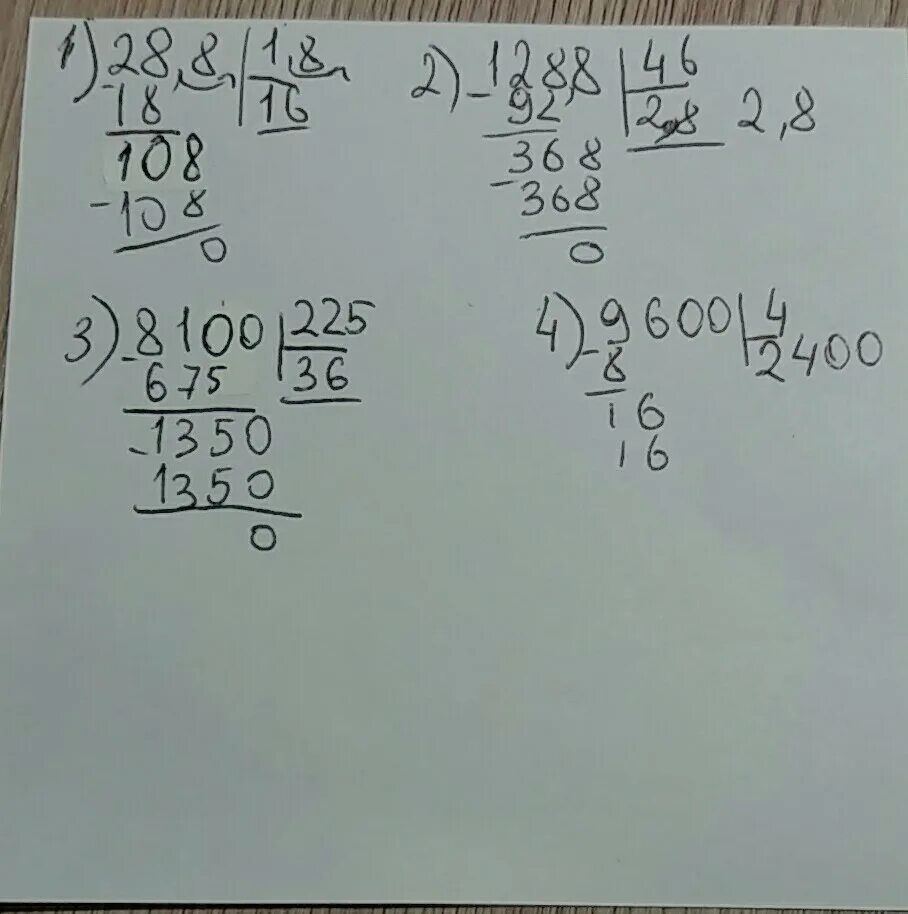 1) 28,8 | 1,8
18 | 16
108
- 108
0
2) - 128,8 | 46
92 | 2,8 2,8
368
- 368
0
3) - 8100 | 225
675 | 36
- 1350
1350
0
4) - 9600 | 4
8 | 2400
16
16